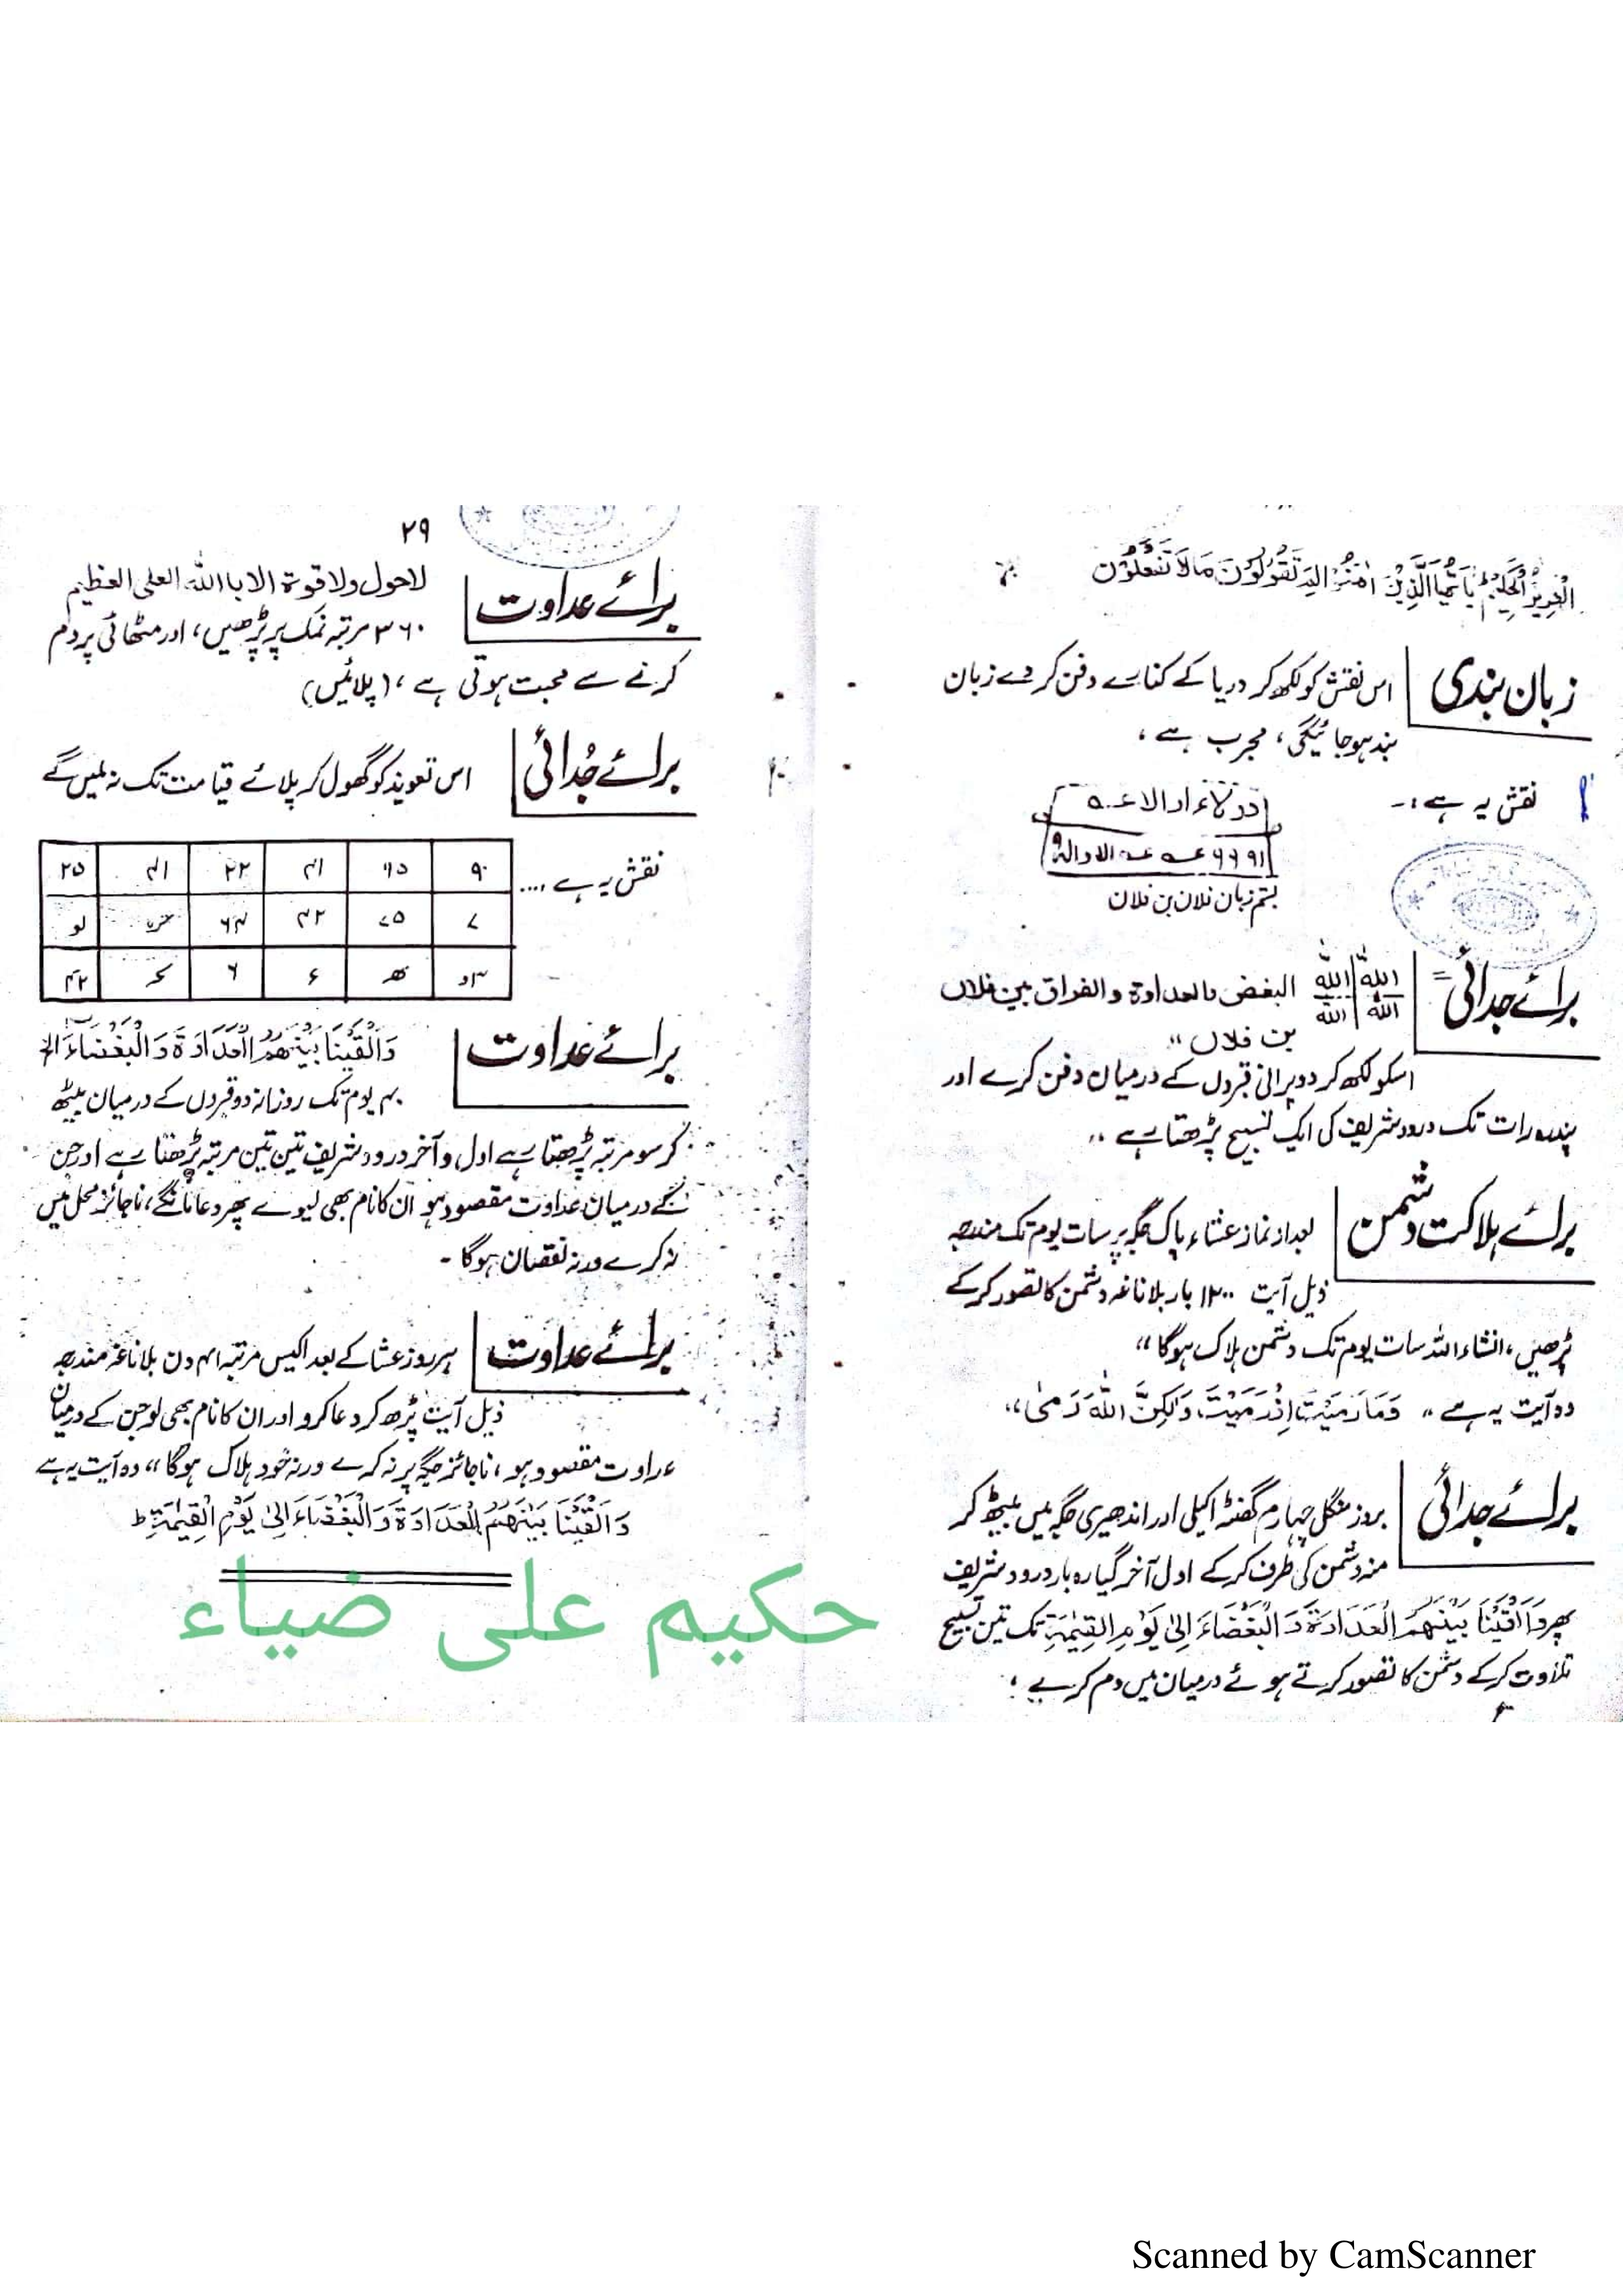 العزیز الحکیم یا یھا الذین اٰمنوا لم تقولون مالا تفعلون
زبان بندی
اس نقش کو لکھ کر دریا کے کنارے دفن کر دے زبان
بند ہو جائیگی، مجرب ہے،
نقش یہ ہے :۔
بستم زبان فلان بن فلان
برائے جدائی
الله الله
الله الله
البغض والعداوة والفراق بین فلاں
بن فلاں"
اسکو لکھ کر دو پرانی قبروں کے درمیان دفن کرے اور
پندرہ رات تک درود شریف کی ایک تسبیح پڑھتا رہے ،،
برائے ہلاکت دشمن
بعد از نماز عشاء پاک جگہ پر سات یوم تک مندرجہ
ذیل آیت ۱۲۰۰ بار بلا ناغہ دشمن کا تصور کرکے
پڑھیں، انشاء اللہ سات یوم تک دشمن ہلاک ہوگا،،
وہ آیت یہ ہے ،، وَمَا رَمَیْتَ اِذْ رَمَیْتَ وَلٰکِنَّ اللّٰهَ رَمٰی،،
برائے جدائی
بروز منگل چہارم گھنٹہ اکیلی اور اندھیری جگہ میں بیٹھ کر
منہ دشمن کی طرف کرکے اول آخر گیارہ بار درود شریف
پھر وَاَلْقَیْنَا بَیْنَهُمُ الْعَدَاوَةَ وَالْبَغْضَاءَ اِلٰی یَوْمِ الْقِیٰمَةِ تک تین تسبیح
تلاوت کرکے دشمن کا تصور کرتے ہوئے درمیان میں دم کریے ،
۲۹
برائے عداوت
لاحول ولا قوة الا بالله العلی العظیم
۳۶۰ مرتبہ نمک پر پڑھیں، اور مٹھائی پر دم
کرنے سے محبت ہوتی ہے، (پلائیں)
برائے جُدائی
اس تعویذ کو گھول کر پلائے قیامت تک نہ ملیں گے
نقش یہ ہے ....
برائے عداوت
وَاَلْقَیْنَا بَیْنَهُمُ الْعَدَاوَةَ وَالْبَغْضَاءَ الخ
۴۰ یوم تک روزانہ دو قبروں کے درمیان بیٹھ
کر سو مرتبہ پڑھتا رہے اول و آخر درود شریف تین تین مرتبہ پڑھتا رہے اور جن
کے درمیان عداوت مقصود ہو ان کا نام بھی لیوے پھر دعا مانگے، ناجائز محل میں
نہ کرے ورنہ نقصان ہوگا ۔
برائے عداوت
ہر روز عشا کے بعد اکیس مرتبہ ۴۱ دن بلا ناغہ مندرجہ
ذیل آیت پڑھ کر دعا کرو اور ان کا نام بھی لو جن کے درمیان
عداوت مقصود ہو، ناجائز جگہ پر نہ کرے ورنہ خود ہلاک ہوگا،، وہ آیت یہ ہے
وَاَلْقَیْنَا بَیْنَهُمُ الْعَدَاوَةَ وَالْبَغْضَاءَ اِلٰی یَوْمِ الْقِیٰمَةِ ط
حکیم علی ضیاء
Scanned by CamScanner